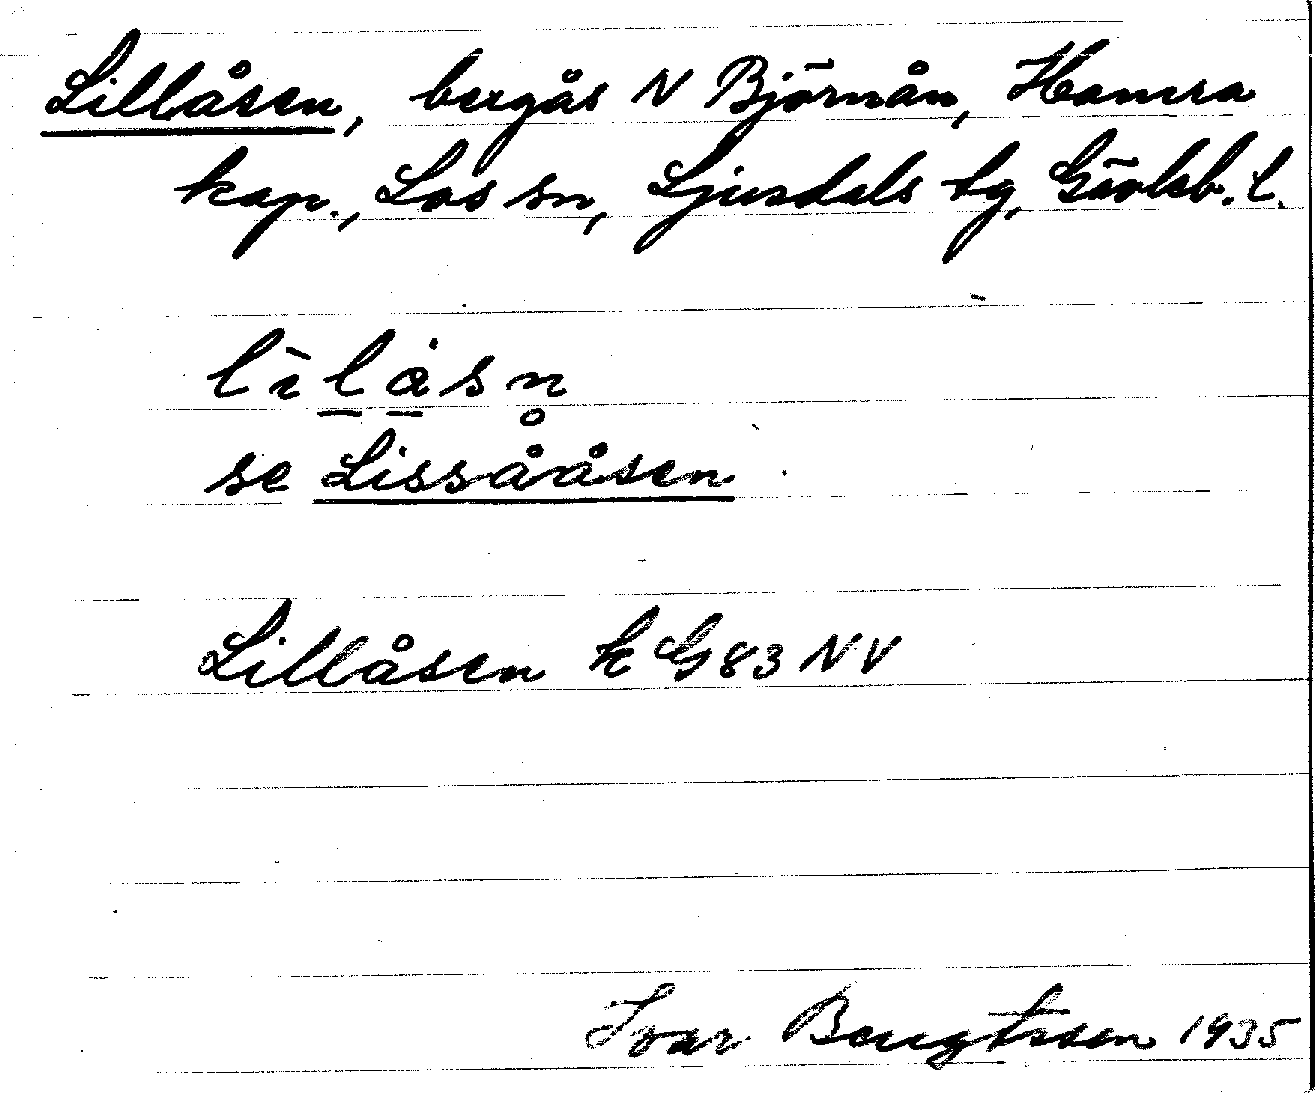 Lillåsen, bergås N Björnån, Hamra
kap., Los sn, Ljusdals tg, Gävleb. l.
lìlåsn̥
se Lissååsen
Lillåsen k G83 NV
Ivar Bengtsson 1935